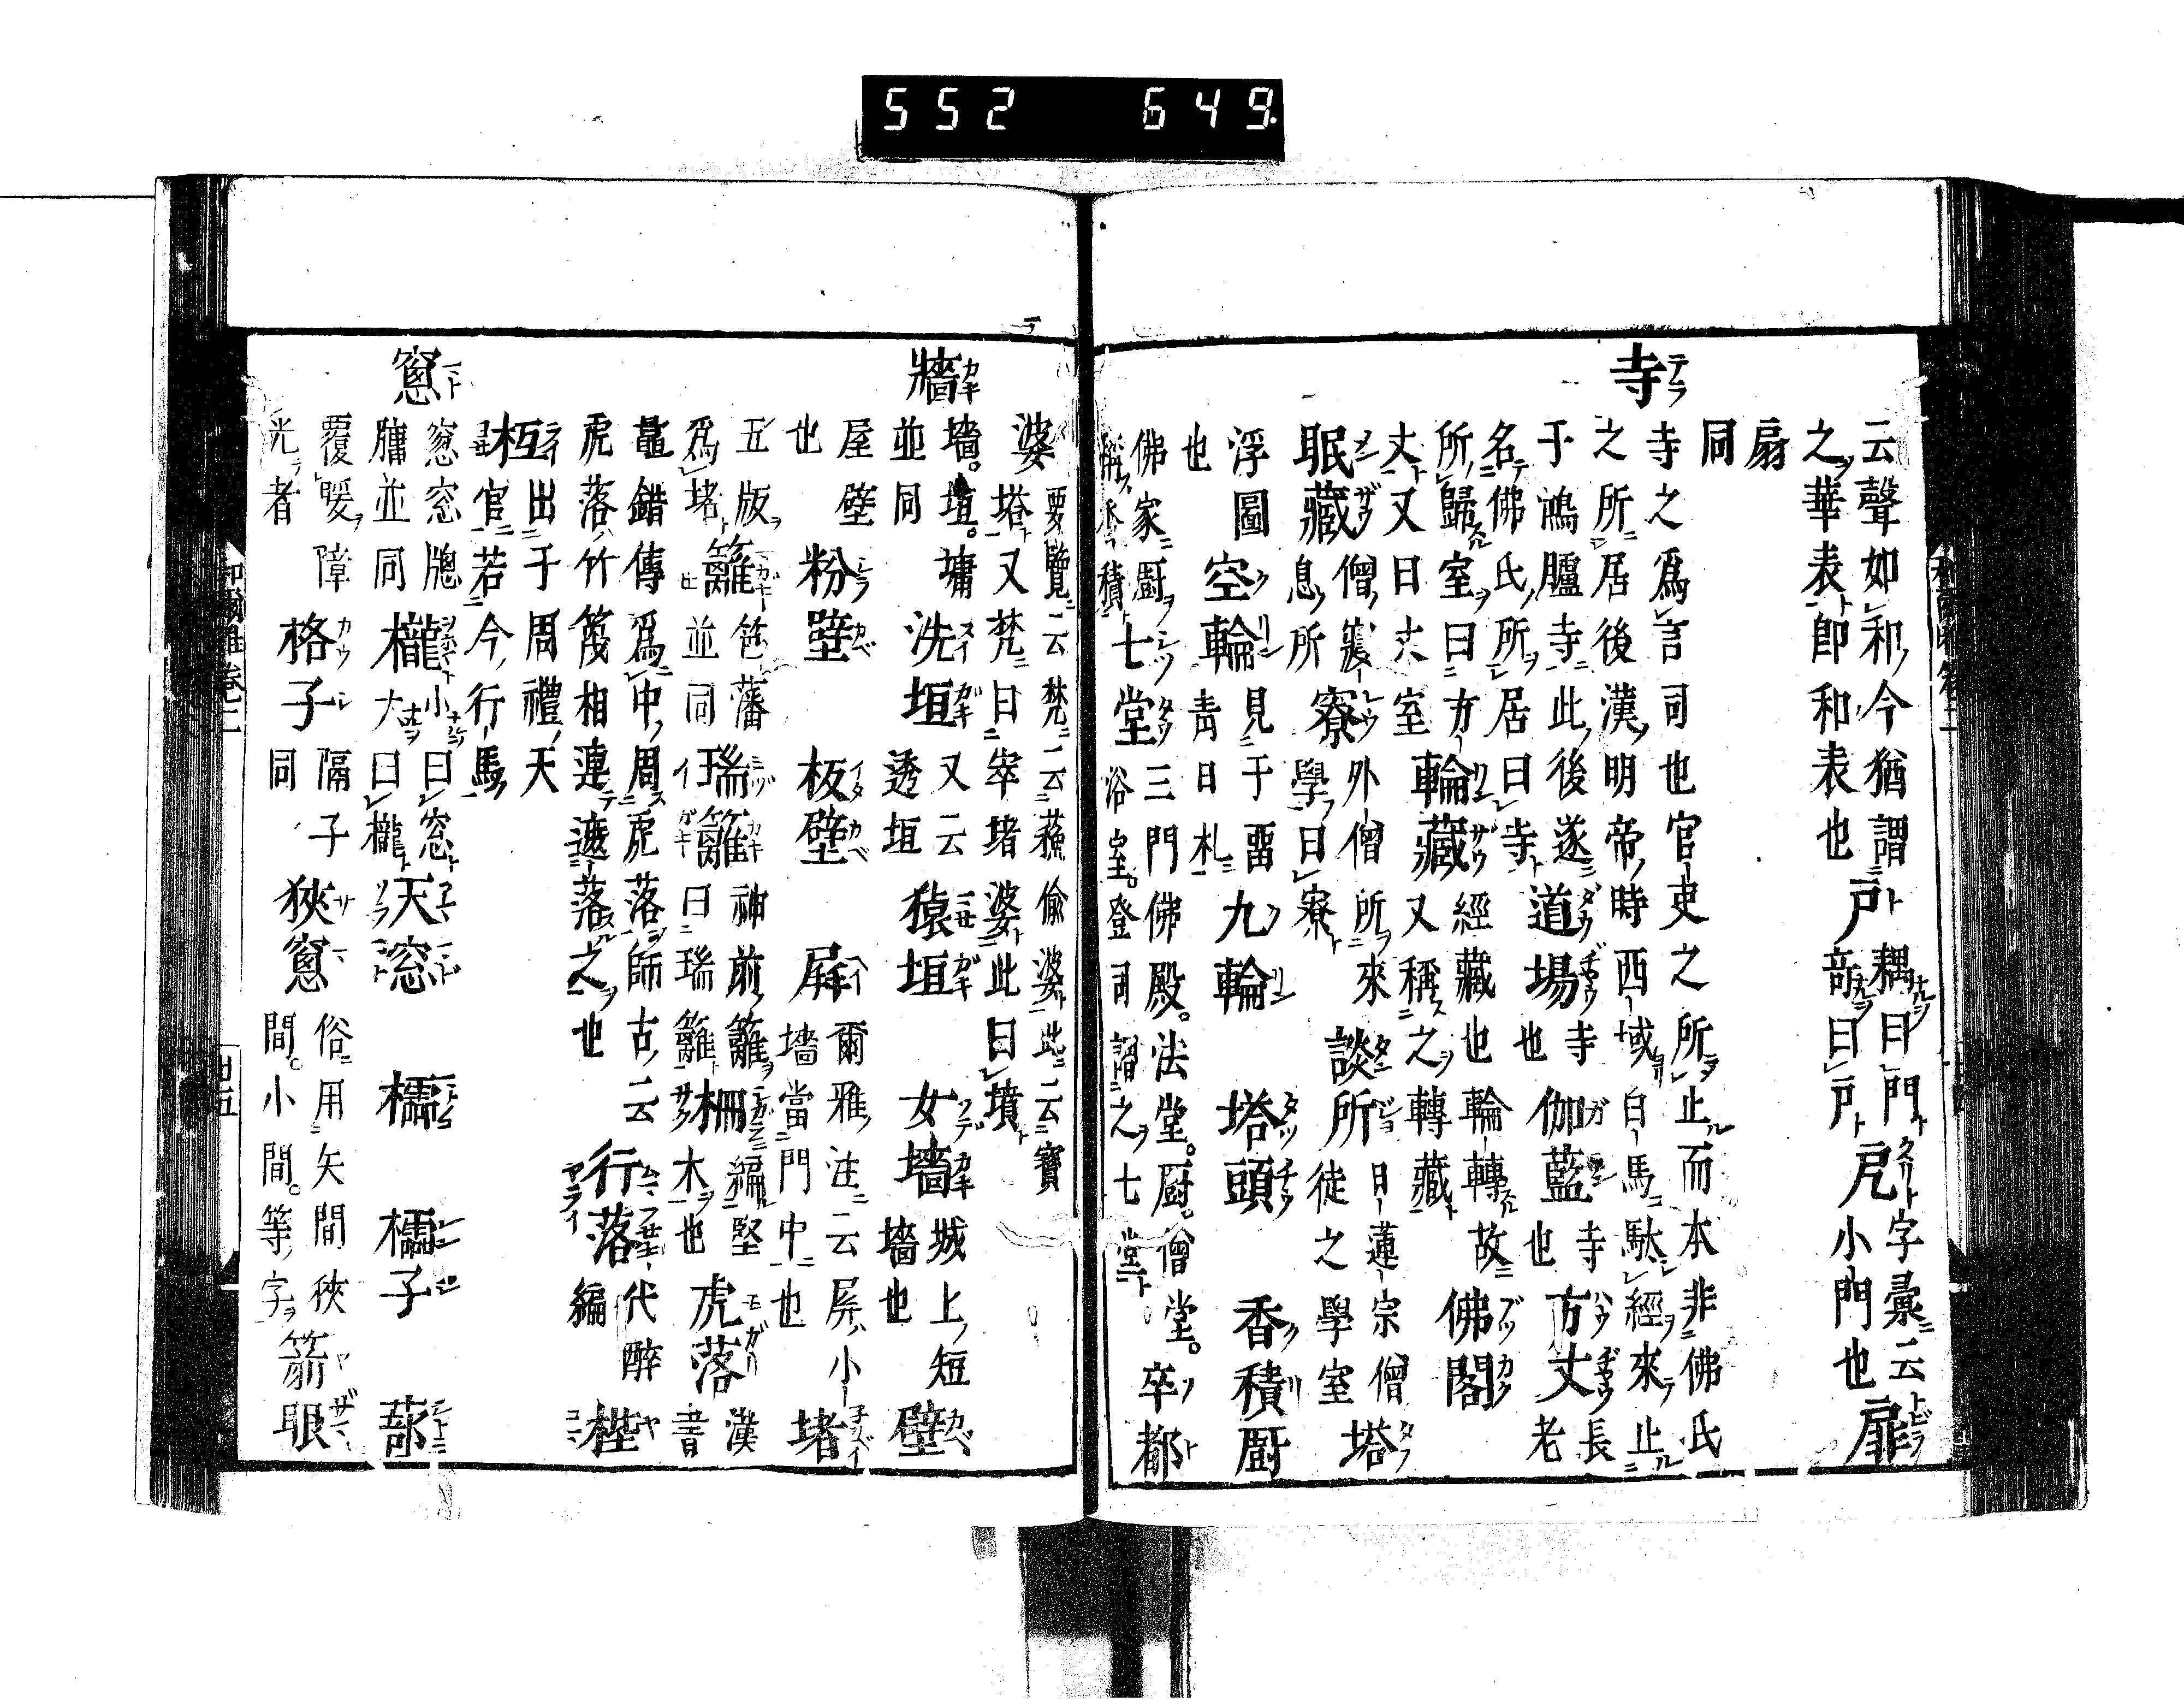 552 649.
云聲如和今猶謂 戶 耦曰門 戹 字彙云 扉
之華表卽和表也 竒曰戶 小門也
扇
同
寺 寺之爲言司也官吏之所止而本非佛氏
之所居後漢明帝時西域白馬駄經來止
于鴻臚寺此後遂 道場 寺也 伽藍 寺也 方丈 長老
名佛氏所居曰寺
所歸室曰方丈又曰丈室 輪藏 經藏也輪轉故又稱之轉藏 佛閣
眠藏 僧寢息所 寮 外僧所來學曰寮 談所 日蓮宗僧徒之學室 塔
浮圖也 空輪 見于畱青日札 九輪 塔頭 香積厨
佛家厨稱香積 七堂 三門佛殿。法堂。厨。僧堂。浴室。登司謂之七堂 卒都
婆 要覽云梵云蘓偷婆此云寶
塔又梵曰窣堵婆此曰墳
牆 墻。垣。墉並同 洗垣 又云透垣 猿垣 女墻 城上短墻也 壁
屋壁也 粉壁 板壁 屏 爾雅注云屏小墻當門中也 堵
五版爲堵 籬 笆藩並同 瑞籬 神前籬曰瑞籬 柵 編堅木也 虎落 漢書
鼂錯傳爲中周虎落師古云
虎落竹篾相連遮落之也 行落 代醉編 梐
枑 出于周禮天官若今行馬
窻 窓窓牕牖並同 櫳 小曰窓大曰櫳 天窓 櫺 櫺子 蔀
覆暖障光者 格子 隔子同 狹窻 俗用矢間狹間。小間。等字 箭眼
和爾雅卷二
廿五